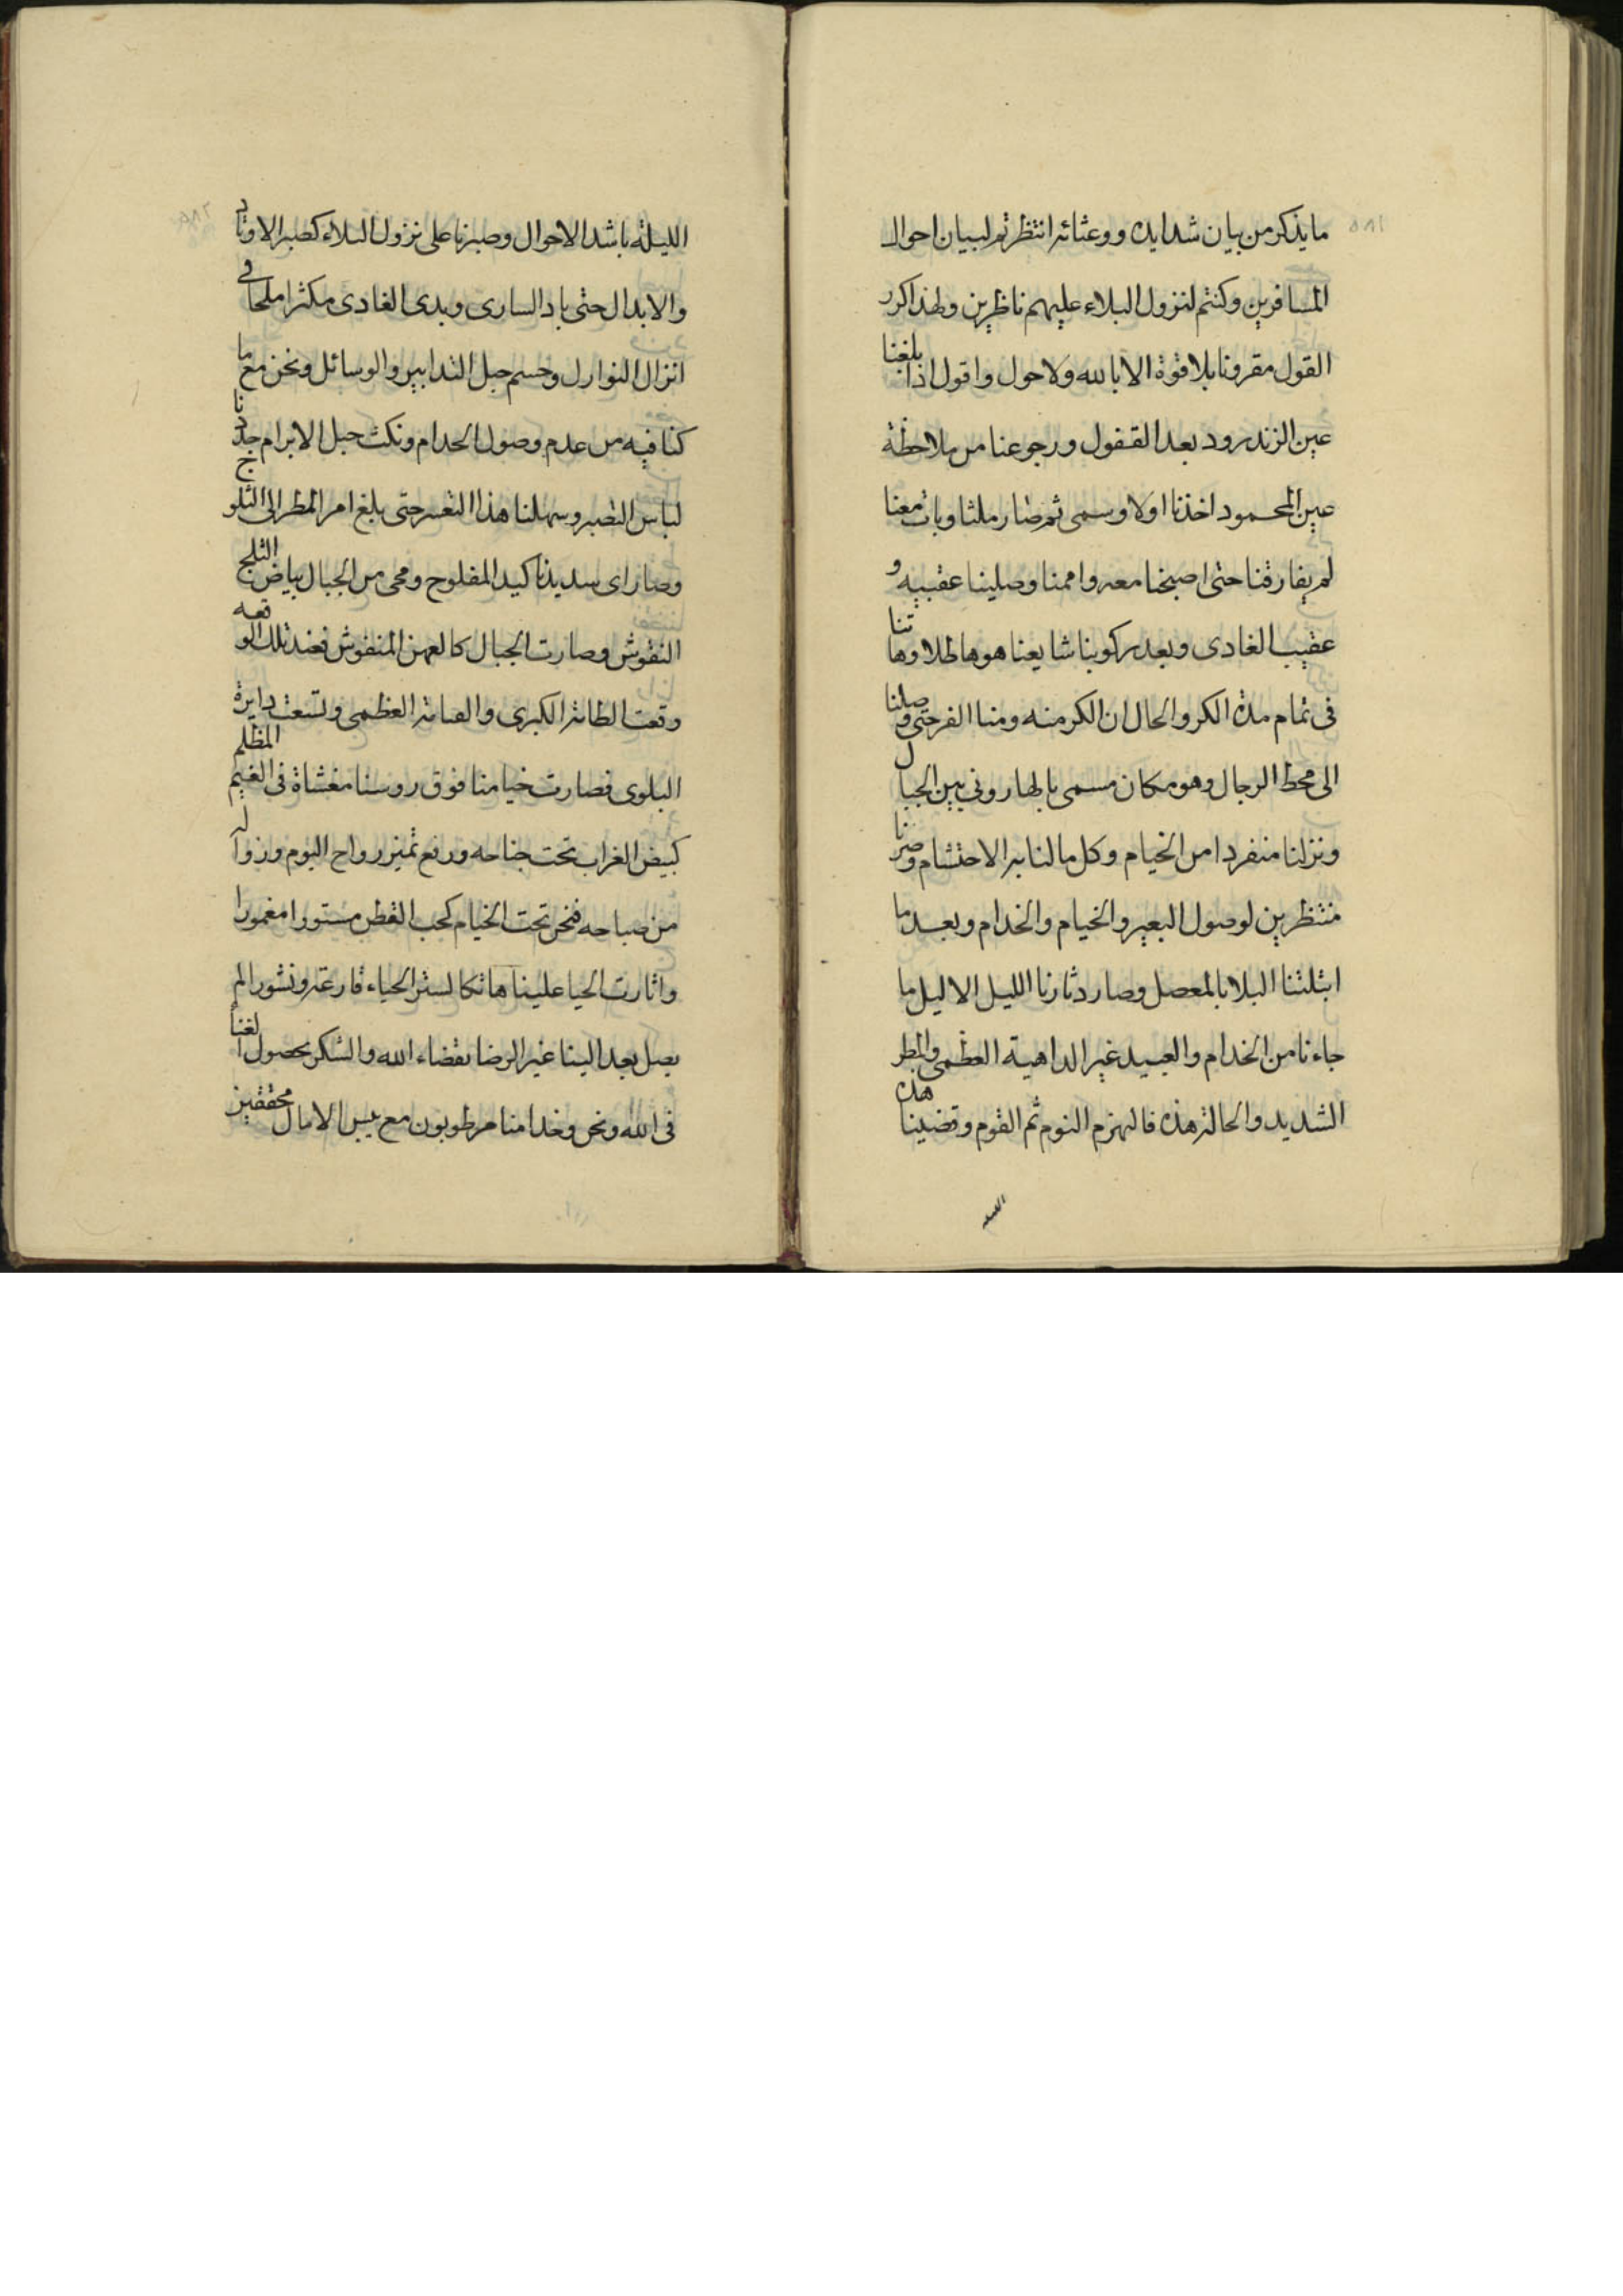 ٥٨١
ما يذكر من بيان شدايده ووعثائه انتظرتم لبيان احوال
المسافرين وكنتم لنزول البلاء عليهم ناظرين ولهذا اكرر
القول مقرونا بلا قوة الا بالله ولا حول واقول اذا بلغنا
عين الزنده رود بعد القفول ورجوعنا من ملاحظة
عين المحمود اخذنا اولا وسمى ثم صار ملثا وبات معنا
لم يفارقنا حتى اصبحنا معه واممنا وصلينا عقيبه و
عقيب الغادى وبعد ركوبنا شايعنا هو هاطلا وهاتنا
فى تمام مدة الكر والحال ان الكر منه ومنا الفر حتى وصلنا
الى محط الرجال وهو مكان مسمى بالهارونى بين الجبال
ونزلنا منفردا من الخيام وكل ما لنا به الاحتشام وصرنا
منتظرين لوصول البعير والخيام والخدام وبعد ما
ابتلتنا البلايا بالمعصل وصار دثارنا الليل الاليل ما
جاءنا من الخدام والعبيد غير الداهية العظمى والمطر
الشديد والحالة هذه فانهزم النوم ثم القوم وقضينا هذه
الليلة
٥٨٢
الليلة باشد الاحوال وصبرنا على نزول البلاء كصبر الاوتاد
والابدال حتى باد السارى وبدى الغادى مكثرا ملحا فى
انزال النوازل وحسم حبل التدابير والوسائل ونحن مع ما
كنا فيه من عدم وصول الخدام ونكث حبل الابرام جددنا
لباس التصبر وسهلنا هذا التعسر حتى بلغ امر المطر الى الثلوج
وصار راى سديدنا كيد المفلوح ومحى من الجبال بياض الثلج
النقوش وصارت الجبال كالعهن المنفوش فعند تلك الوقعه
وقعت الطامة الكبرى والصاخة العظمى ولسعت دايرة
البلوى فصارت خيامنا فوق روسنا مغشاة فى الغيم المظلم
كبيض الغراب تحت جناحه ورفع تميز رواح اليوم وزواله
من صباحه فنحن تحت الخيام كحب القطن مستورا مغمورا
واثارت الحيا علينا هاتكا لستر الحياء قارعة ونشورا لم
يصل بعد الينا غير الرضا بقضاء الله والشكر بحصول الغنا
فى الله ونحن وخدامنا مرطوبون مع يبس الامال محققين